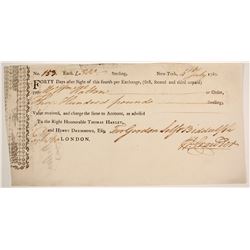 No. 152 Exch. £ 200 Sterling, New-York, 5th July 178
FORTY Days after Sight of this fourth per Exchange, (first, Second and third unpaid)
Pay Messrs Walton or Order,
Two Hundred pounds Sterling,
Value received, and charge the same to Account, as advised
To the Right Honourable THOMAS HARLEY,
and HENRY DRUMMOND, Esq. For Gordon Self & Biddulph
LONDON.